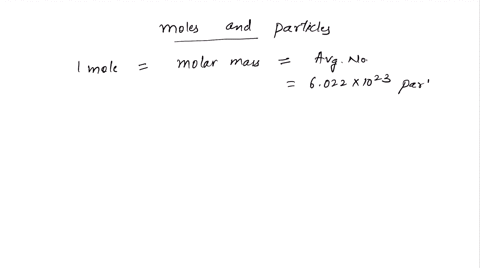 moles and particles
1 mole = molar mass = Avg. No
= 6.022 × 10²³ par